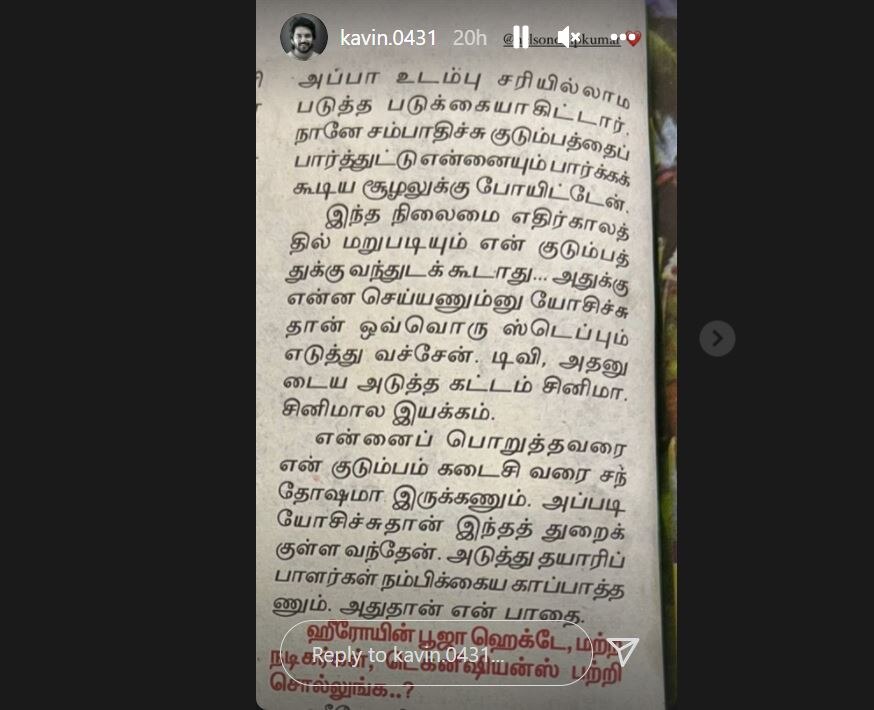 kavin.0431 20h
அப்பா உடம்பு சரியில்லாம
படுத்த படுக்கையாகிட்டார்.
நானே சம்பாதிச்சு குடும்பத்தைப்
பார்த்துட்டு என்னையும் பார்க்கக்
கூடிய சூழலுக்கு போயிட்டேன்.
இந்த நிலைமை எதிர்காலத்
தில் மறுபடியும் என் குடும்பத்
துக்கு வந்துடக் கூடாது... அதுக்கு
என்ன செய்யணும்னு யோசிச்சு
தான் ஒவ்வொரு ஸ்டெப்பும்
எடுத்து வச்சேன். டிவி, அதனு
டைய அடுத்த கட்டம் சினிமா.
சினிமால இயக்கம்.
என்னைப் பொறுத்தவரை
என் குடும்பம் கடைசி வரை சந்
தோஷமா இருக்கணும். அப்படி
யோசிச்சுதான் இந்தத் துறைக்
குள்ள வந்தேன். அடுத்து தயாரிப்
பாளர்கள் நம்பிக்கைய காப்பாத்த
ணும். அதுதான் என் பாதை.
ஹீரோயின் பூஜா ஹெக்டே, மற்ற
Reply to kavin.0431...
நடிகர்கள், டெக்னீஷியன்ஸ் பற்றி
சொல்லுங்க..?